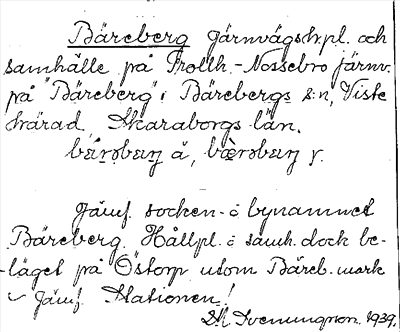 Bäreberg Järnvägshpl. och
samhälle på Trollh.-Nossebro järnv.
på "Bäreberg" i Bärebergs s:n, Viste
härad, Skaraborgs län.
å, y.
Jämf. socken- o bynamnet
Bäreberg. Hållpl. o samh. dock be-
läget på Östorp utom Bäreb. mark
Jämf. Stationen!
1939.